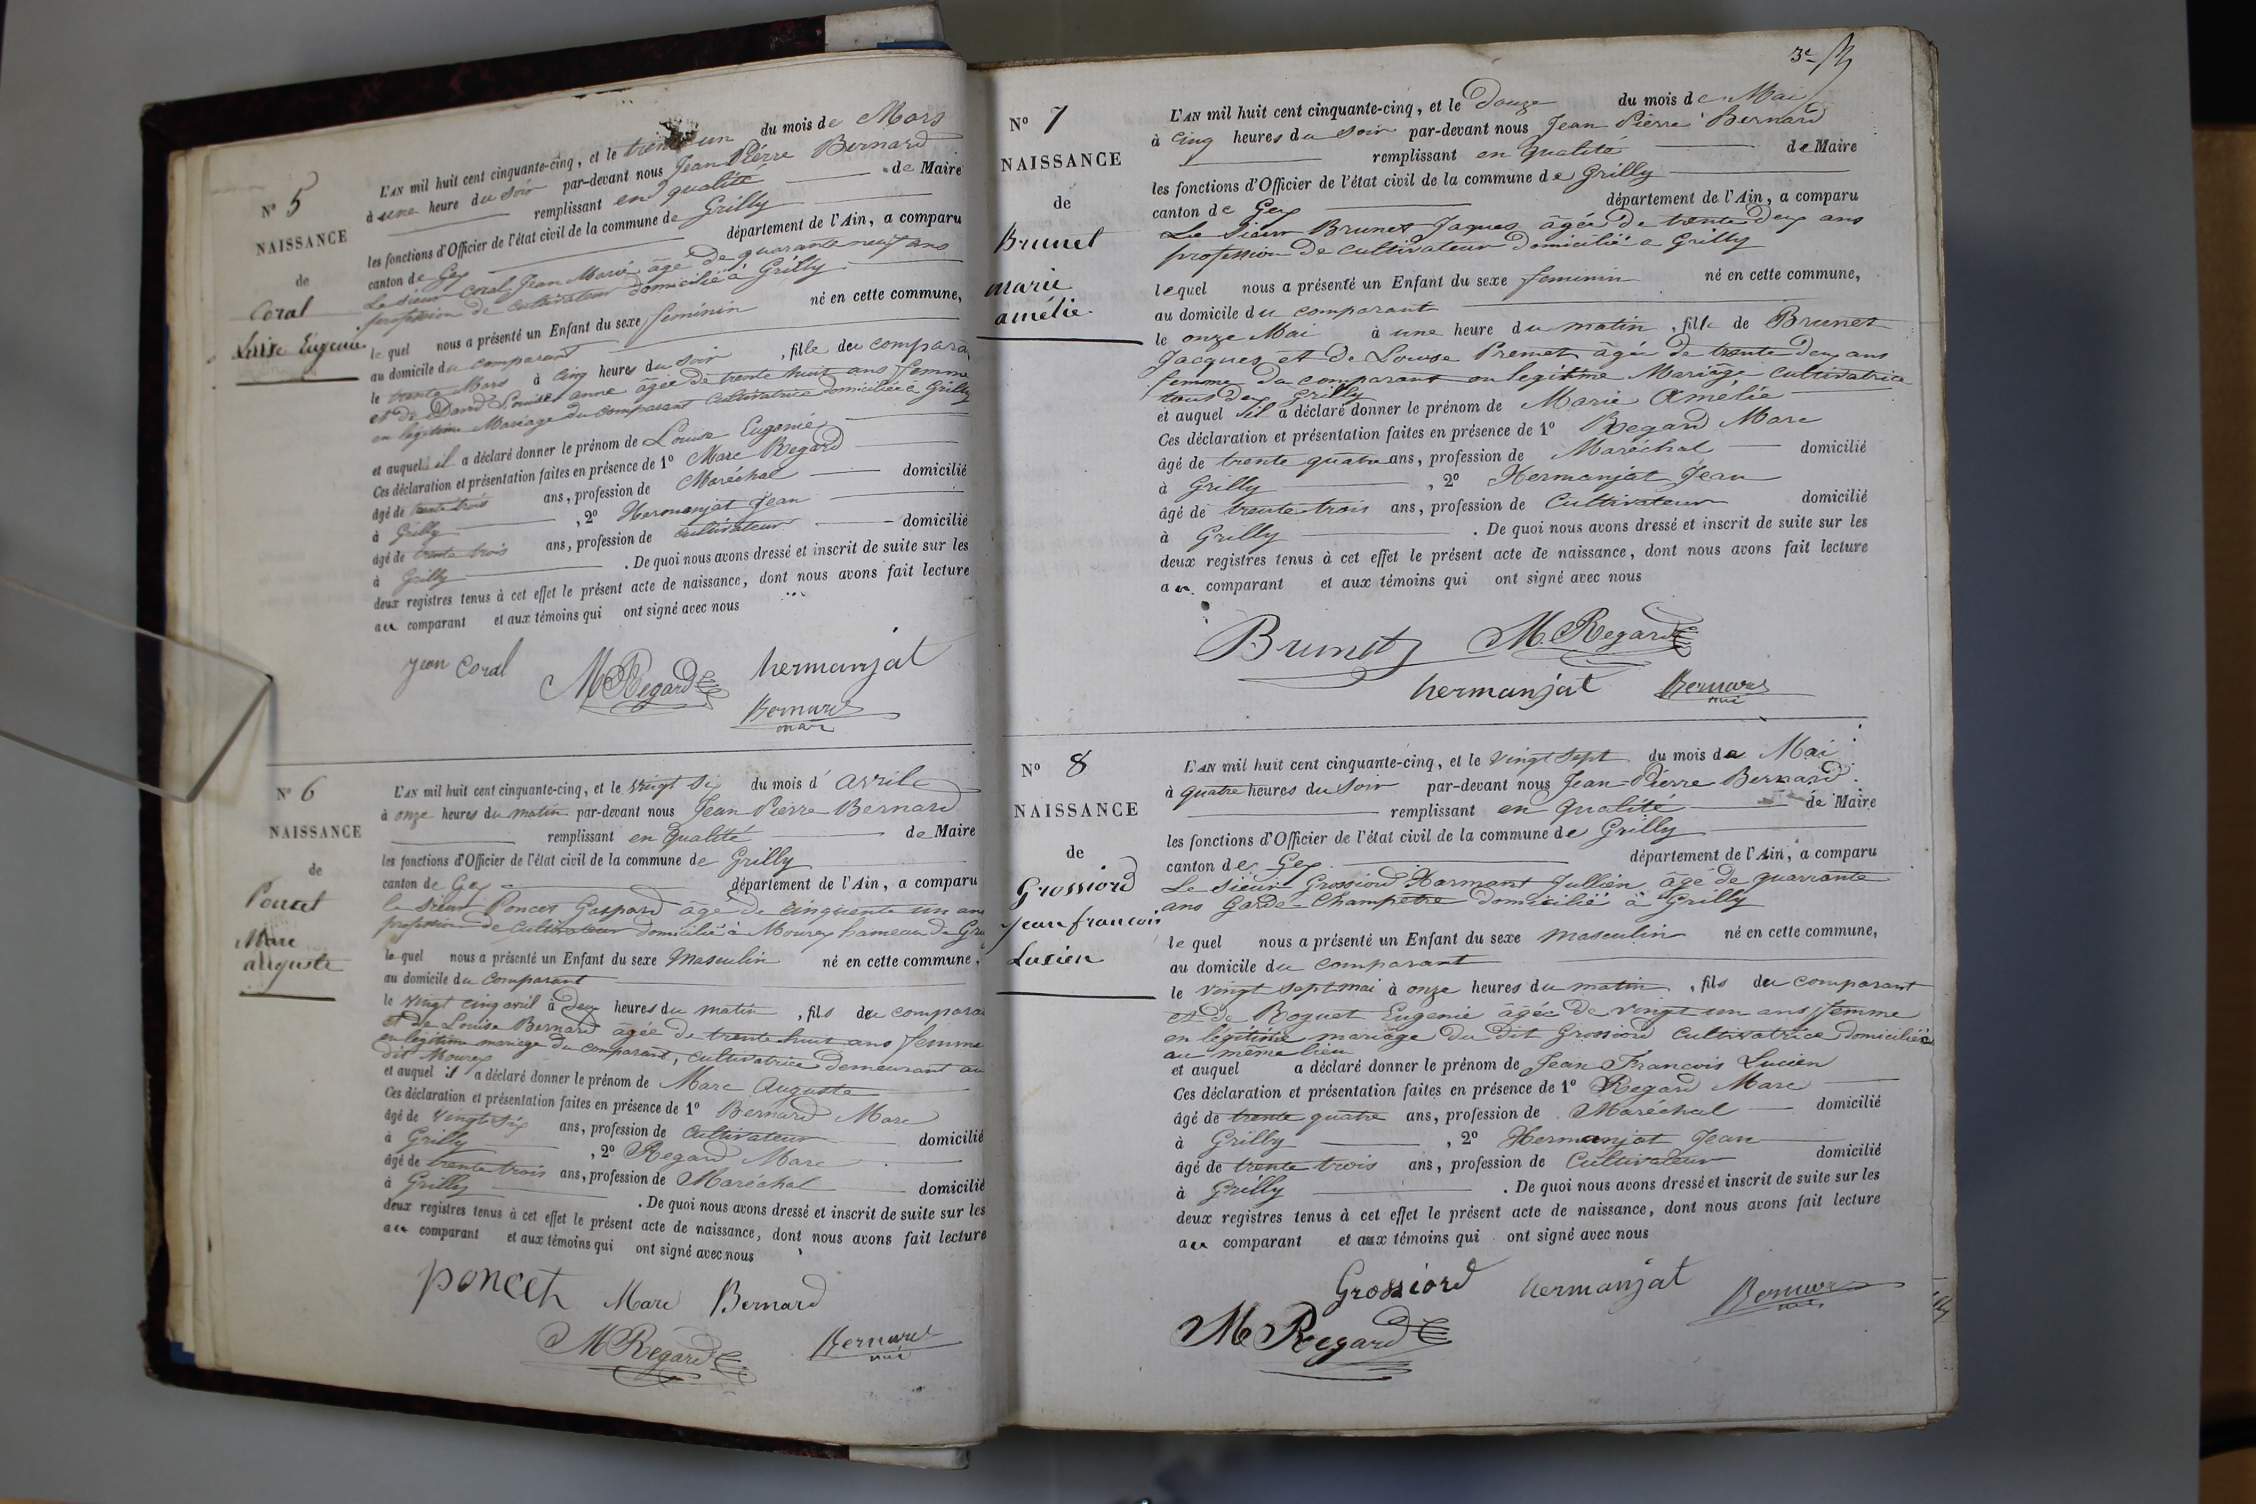 N° 5
NAISSANCE
de
Coral
Louise Eugenie
L'AN mil huit cent cinquante-cinq, et le trente un du mois de Mars
à une heure du soir par-devant nous Jean Pierre Bernard
remplissant en qualité de Maire
les fonctions d'Officier de l'état civil de la commune de Grilly
canton de Gex département de l'Ain, a comparu
Le sieur Coral Jean Marie âgé de quarante neuf ans
profession de cultivateur domicilié à Grilly
le quel nous a présenté un Enfant du sexe féminin né en cette commune,
au domicile du comparant
le trente Mars à cinq heures du soir, fille du compara
et de David Louise anne âgée de trente huit ans femme
en légitime Mariage du comparant cultivatrice domiciliée à Grilly
et auquel il a déclaré donner le prénom de Louise Eugenie
Ces déclaration et présentation faites en présence de 1° Marc Regard
âgé de trente trois ans, profession de Maréchal domicilié
à Grilly, 2° Hermanjat Jean
âgé de trente trois ans, profession de cultivateur domicilié
à Grilly. De quoi nous avons dressé et inscrit de suite sur les
deux registres tenus à cet effet le présent acte de naissance, dont nous avons fait lecture
au comparant et aux témoins qui ont signé avec nous
jean coral M Regard hermanjat
Bernard
mair
N° 6
NAISSANCE
de
Poncet
Marc
auguste
L'AN mil huit cent cinquante-cinq, et le vingt six du mois d'avril
à onze heures du matin par-devant nous Jean Pierre Bernard
remplissant en qualité de Maire
les fonctions d'Officier de l'état civil de la commune de Grilly
canton de Gex département de l'Ain, a comparu
le sieur Poncet Gaspard âgé de cinquente un ans
profession de cultivateur domicilié à Mourex hameau de Gri
le quel nous a présenté un Enfant du sexe Masculin né en cette commune,
au domicile du comparant
le vingt cinq avril à deux heures du matin, fils du compara
et de Louise Bernard âgée de trente huit ans femme
en légitime mariage du comparant, cultivatrice demeurant au
dit Mourex
et auquel il a déclaré donner le prénom de Marc Auguste
Ces déclaration et présentation faites en présence de 1° Bernard Marc
âgé de vingt six ans, profession de cultivateur domicilié
à Grilly, 2° Regard Marc
âgé de trente trois ans, profession de Maréchal domicilié
à Grilly. De quoi nous avons dressé et inscrit de suite sur les
deux registres tenus à cet effet le présent acte de naissance, dont nous avons fait lecture
au comparant et aux témoins qui ont signé avec nous
poncet Marc Bernard
M Regard Bernard
mai
3e
N° 7
NAISSANCE
de
Brunet
marie
amélie
L'AN mil huit cent cinquante-cinq, et le Douze du mois de Mai
à cinq heures du soir par-devant nous Jean Pierre Bernard
remplissant en qualité de Maire
les fonctions d'Officier de l'état civil de la commune de Grilly
canton de Gex département de l'Ain, a comparu
Le sieur Brunet Jaques âgée de trente deux ans
profession de cultivateur domicilié a Grilly
lequel nous a présenté un Enfant du sexe feminin né en cette commune,
au domicile du comparant
le onze Mai à une heure du matin, fille de Brunet
Jacques et de Louise Premet âgée de trente deux ans
femme du comparant en legitime Mariage cultivatrice
tous deux Grilly
et auquel il a déclaré donner le prénom de Marie Amélie
Ces déclaration et présentation faites en présence de 1° Regard Marc
âgé de trente quatre ans, profession de Maréchal domicilié
à Grilly, 2° Hermanjat Jean
âgé de trente trois ans, profession de Cultivateur domicilié
à Grilly. De quoi nous avons dressé et inscrit de suite sur les
deux registres tenus à cet effet le présent acte de naissance, dont nous avons fait lecture
au comparant et aux témoins qui ont signé avec nous
Brunet M. Regard
hermanjat Bernard
mai
N° 8
NAISSANCE
de
Grossiord
jean francois
Lucien
L'AN mil huit cent cinquante-cinq, et le vingt sept du mois de Mai
à quatre heures du soir par-devant nous Jean-Pierre Bernard
remplissant en qualité de Maire
les fonctions d'Officier de l'état civil de la commune de Grilly
canton de Gex département de l'Ain, a comparu
Le sieur Grossiord Harmant Jullien âgé de quarrante
ans Garde-Champetre domicilié à Grilly
le quel nous a présenté un Enfant du sexe masculin né en cette commune,
au domicile du comparant
le vingt sept mai à onze heures du matin, fils du comparant
et de Roguet Eugenie âgée de vingt un ans femme
en légitime mariage du dit Grossiord Cultivatrice domiciliée
au même lieu
et auquel a déclaré donner le prénom de Jean Francois Lucien
Ces déclaration et présentation faites en présence de 1° Regard Marc
âgé de trente quatre ans, profession de Maréchal domicilié
à Grilly, 2° Hermanjat Jean
âgé de trente trois ans, profession de Cultivateur domicilié
à Grilly. De quoi nous avons dressé et inscrit de suite sur les
deux registres tenus à cet effet le présent acte de naissance, dont nous avons fait lecture
au comparant et aux témoins qui ont signé avec nous
Grossiord hermanjat Bernard
mai
M Regard